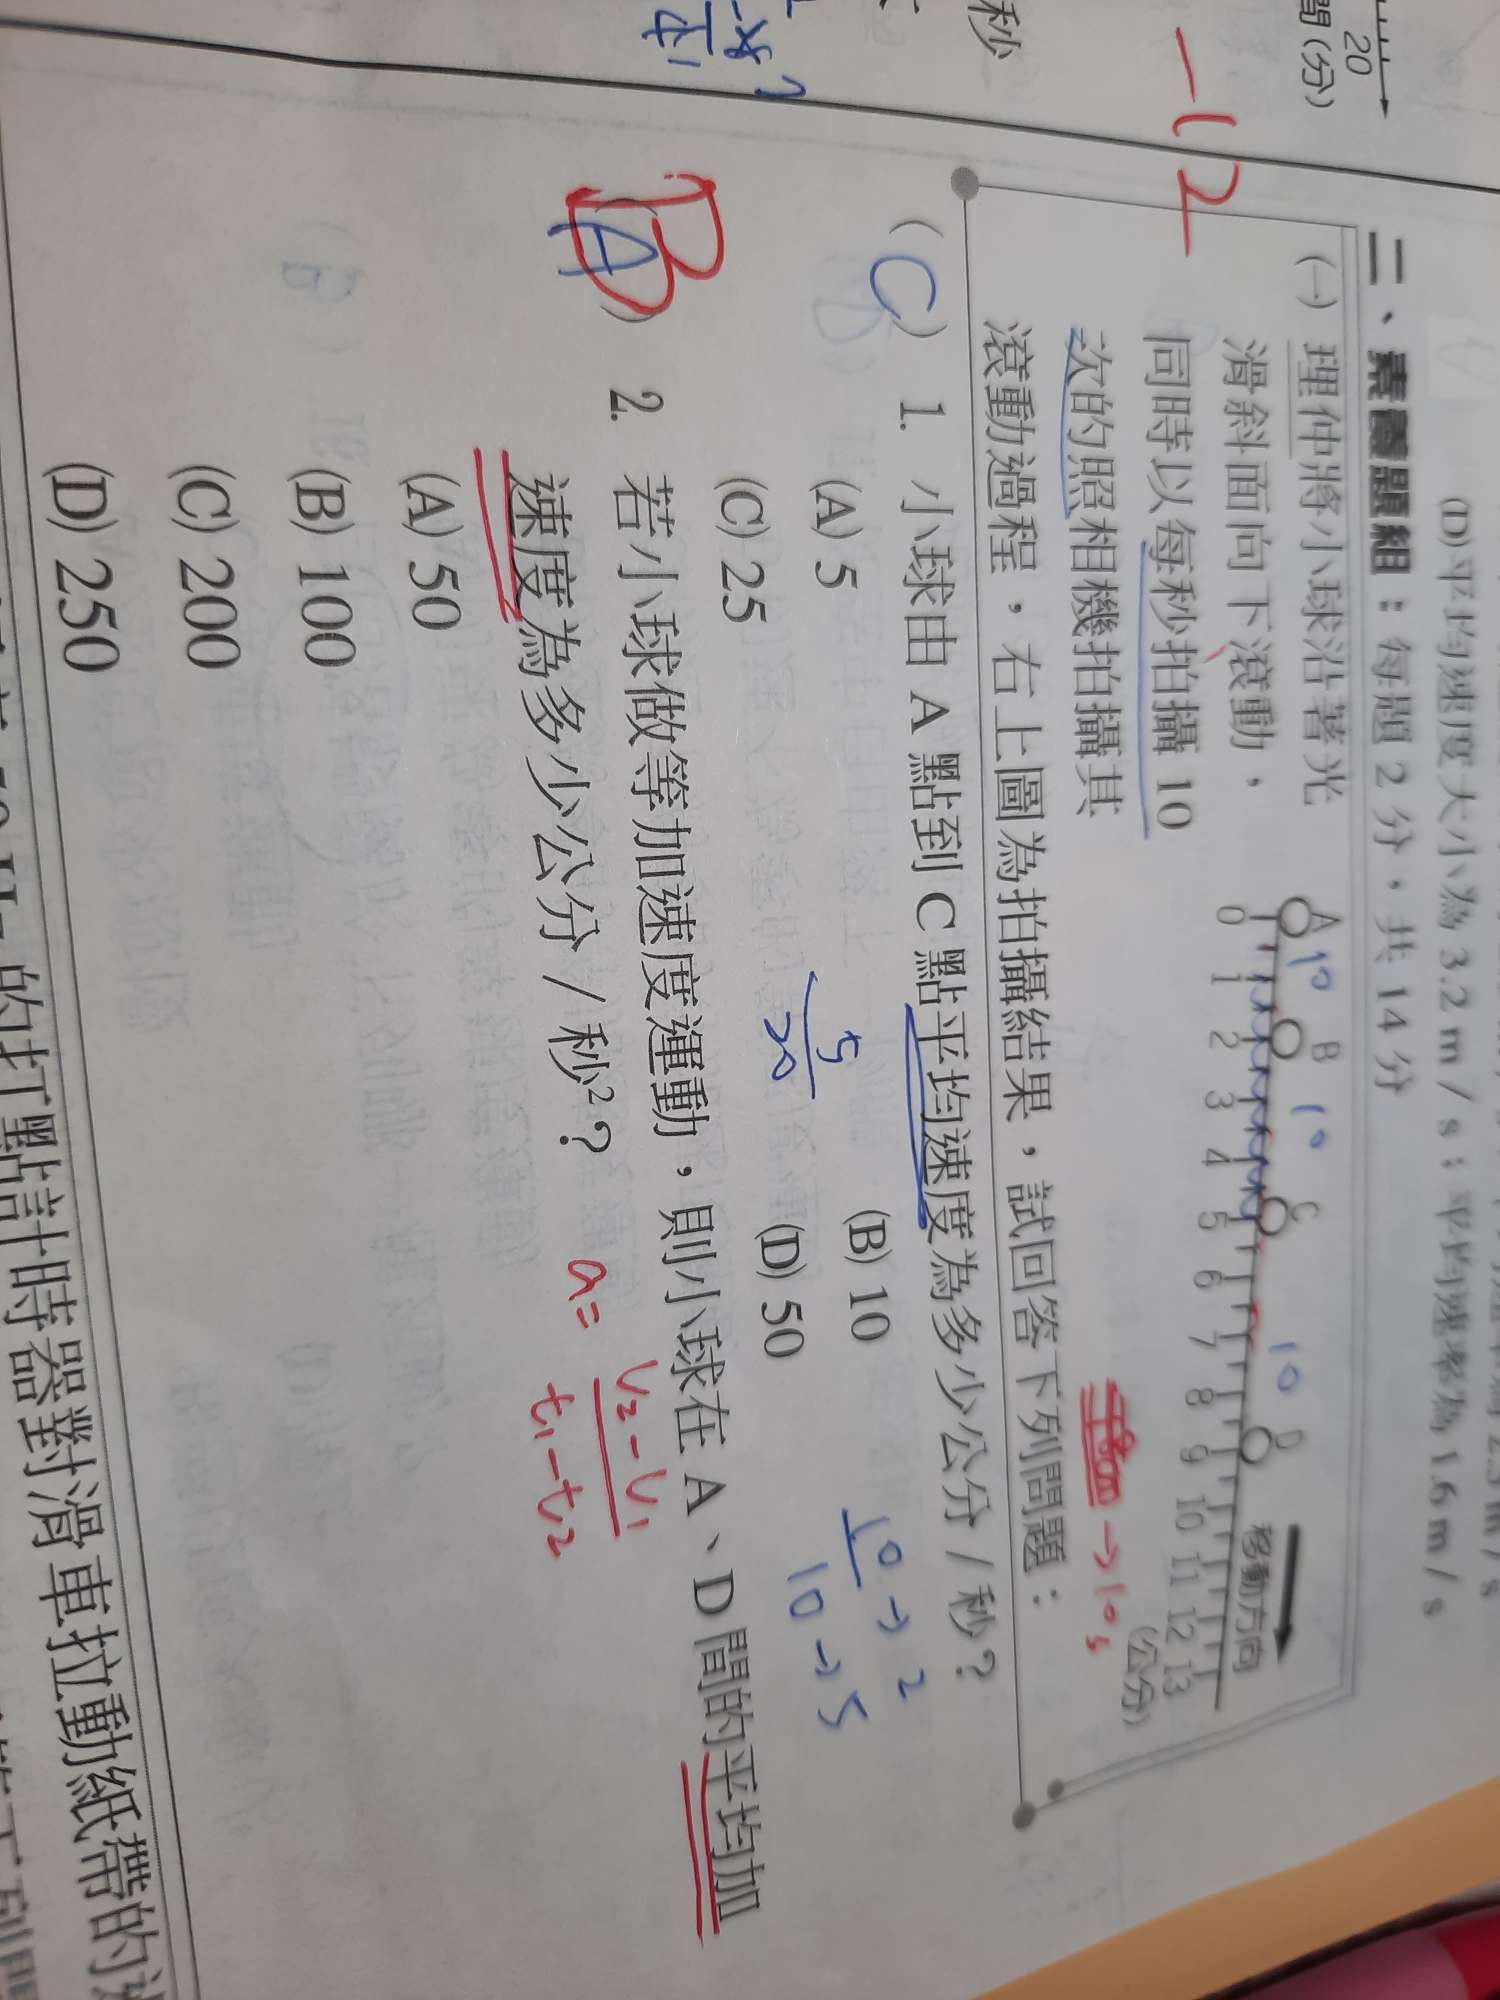 20
間(分)
秒
-12
(D)平均速度大小為 3.2 m / s；平均速率為 1.6 m / s
二、素養題組：每題 2 分，共 14 分
(一) 理仲將小球沿著光
滑斜面向下滾動，
同時以每秒拍攝 10
次的照相機拍攝其
滾動過程，右上圖為拍攝結果，試回答下列問題：
A B C D
10 10 10
0 1 2 3 4 5 6 7 8 9 10 11 12 13
(公分)
移動方向
→10s
( C ) 1. 小球由 A 點到 C 點平均速度為多少公分 / 秒？
(A) 5 (B) 10
(C) 25 (D) 50
5
20
10→2
10→5
B
( A ) 2. 若小球做等加速度運動，則小球在 A、D 間的平均加
速度為多少公分 / 秒²？
a= V₂-V₁
t₁-t₂
(A) 50
(B) 100
(C) 200
(D) 250
的打點計時器對滑車拉動紙帶的